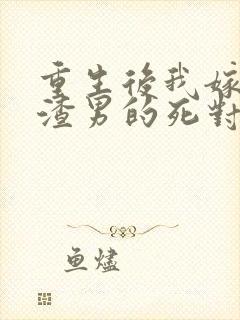 重生後我嫁
渣男的死對
鱼燼